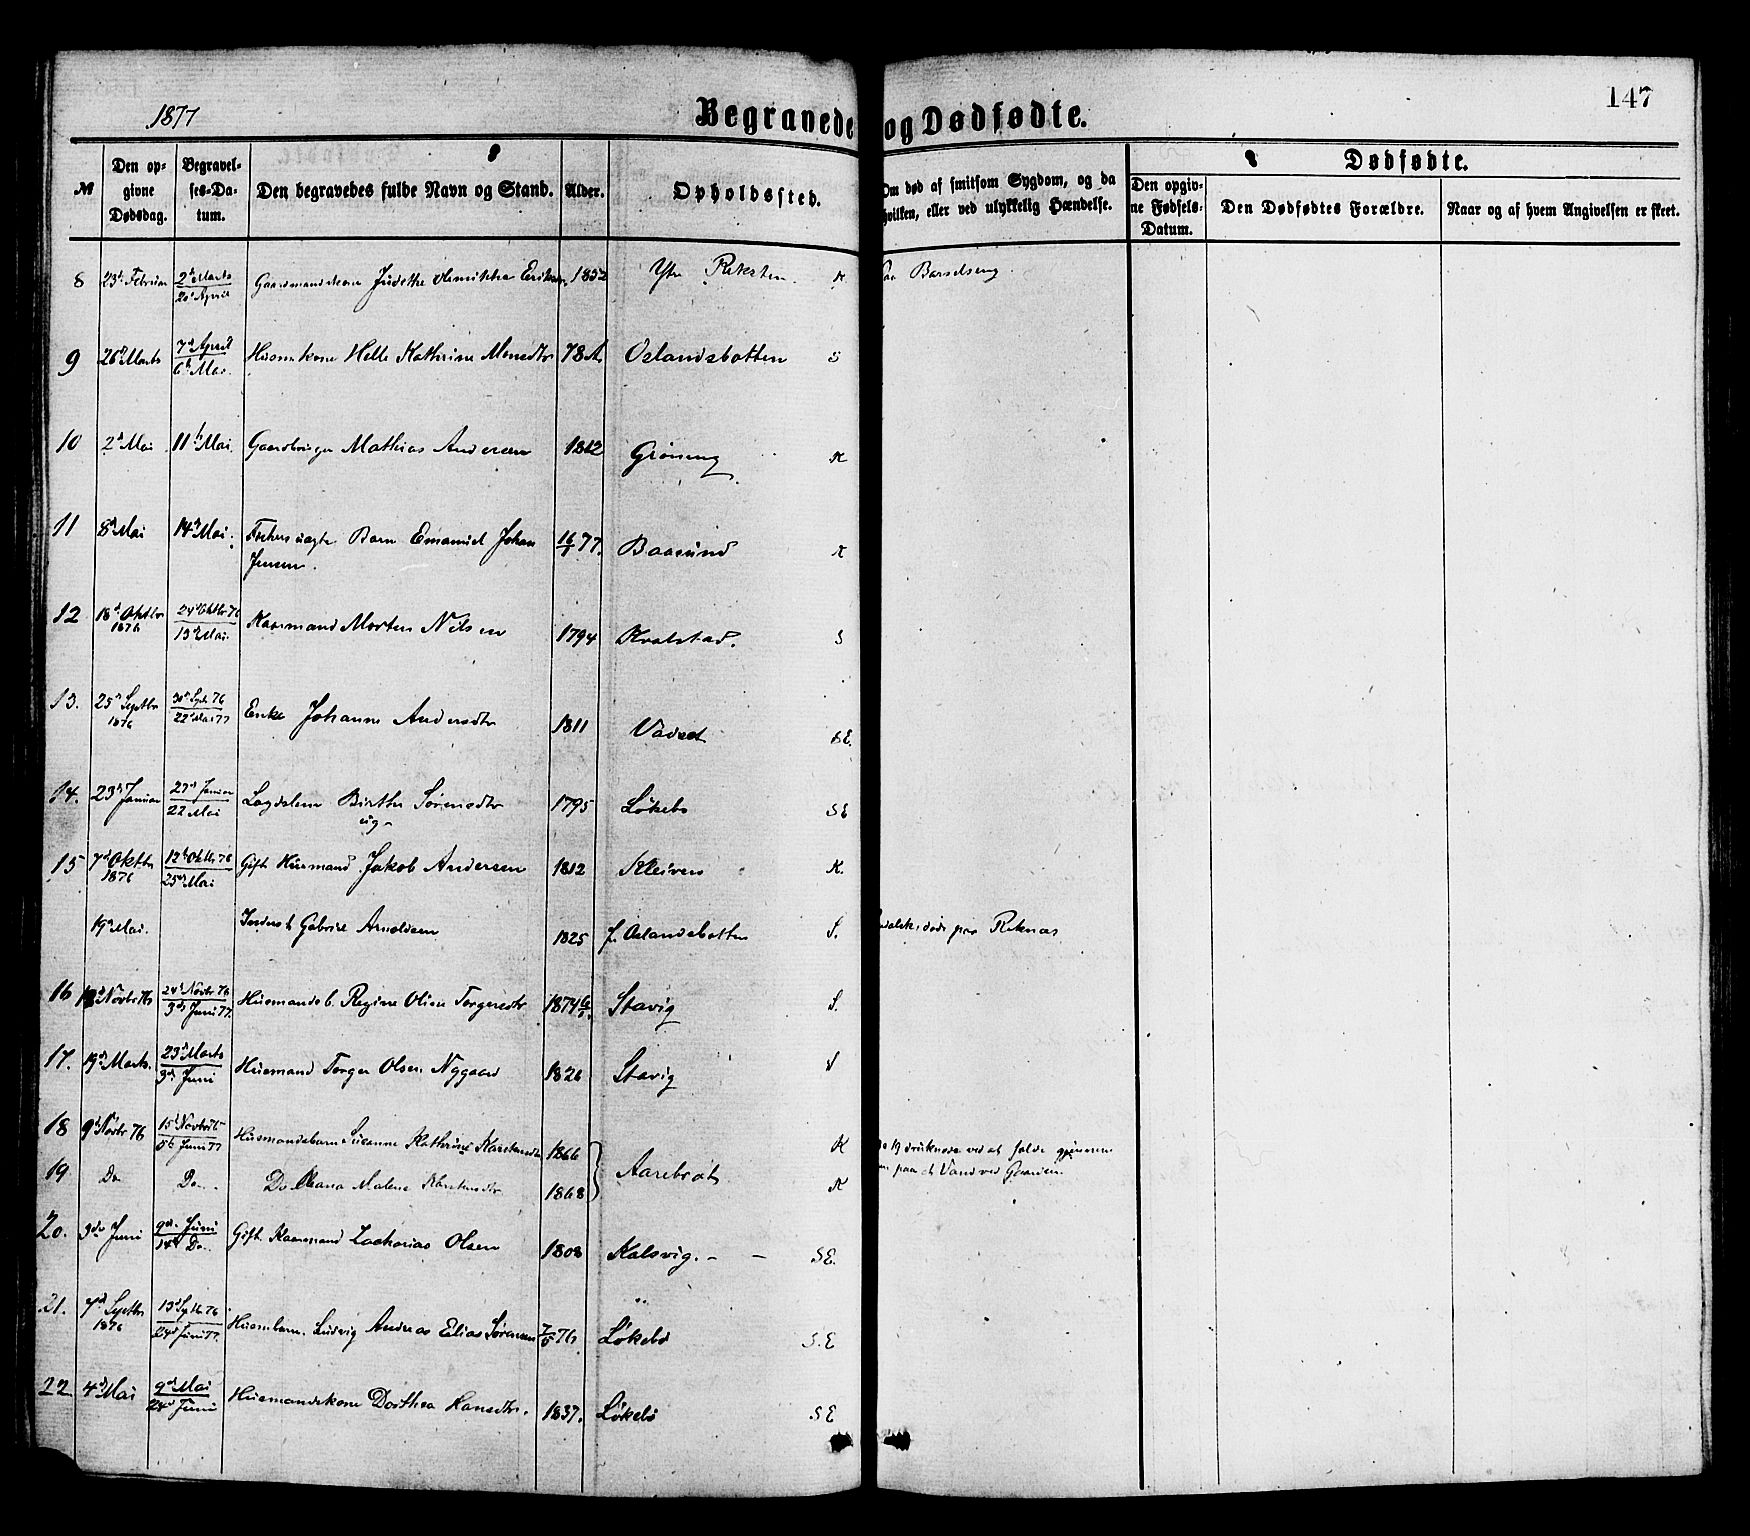 1877
Begravede og Dødfødte.
147
№
Den op-
givne
Dødsdag.
Begravel-
ses-Da-
tum.
Den begravedes fulde Navn og Stand.
Alder.
Opholdssted.
Om død af smitsom Sygdom, og da
hvilken, eller ved ulykkelig Hændelse.
Dødfødte.
Den opgiv-
ne Fødsels-
Datum.
Den Dødfødtes Forældre.
Naar og af hvem Angivelsen er skeet.
8 23de Februar 2den Marts 20de April Gaardmandskone 1852 Ytre K Barselseng
9 26de Marts 7de April 6te Mai Helle Kathrine Monsdtr 78 A Oslandsbotten S
10 2den Mai 11te Mai Mathias Andersen 1812 Grøning K
11 8de Mai 14de Mai Barn Emanuel Johan 16/1 77. Baasund K
Jensen.
12 18de Oktbr 1876 24de Oktbr 76 13de Mai Kaarmand Morten Nilsen 1794 Kvalstad. S
13. 25de Septbr 1876 30te Sept 76 22de Mai 77 Enke Johanne Andersdtr 1811 Vadset SE.
14. 23de Januar 27de Januar 22 Mai Lægdslem Birthe Sørensdtr 1795 Løkebø SE
ug
15 7de Oktbr 1876 12te Oktbr 76 25de Mai Gift Husmand Jakob Andersen 1812 Kleiven K.
19de Mai. Inderst Gabriel Arnoldsen 1825 f. Oslandsbotten S. døde paa Reknæs
16 Novbr 76 24de Novbr 76 3die Juni 77. Husmandsb. Regine Oline Torgersdtr 1874 Stavig S.
17. 19de Marts. 23de Marts 3die Juni Husmand Torger Olsen Nygaard 1826 Stavig S
18 9de Novbr 76 15de Novbr 76 5te Juni 77 Husmandsbarn Susanne Kathrine Karstensdtr 1866 Aarebrot K 19 druknede ved at falde gjennem
19. Do Do Do Oleana Malene Karstensdtr 1868 K paa et Vand ved Gaarden
20. 3die Juni 9de Juni 14de Do Gift Kaarmand Zacharias Olsen 1808 Kalsvig. SE.
21. 7de Septbr 1876 13de Septb. 76 24de Juni 77. Husm barn. Ludvig Andreas Elias Sørensen 7/5 76 Løkebø S.E
22 4de Mai 9de Mai 24de Juni Husmandskone Dorthea Hansdtr. 1837. Løkebø SE